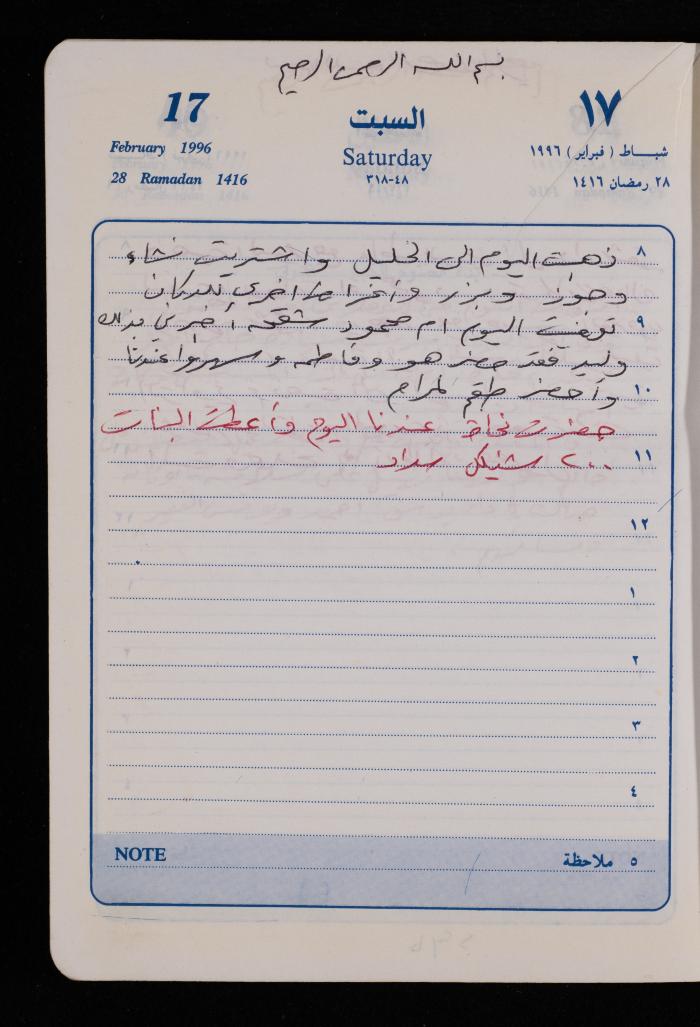 بسم الله الرحمن الرحيم
17 السبت ١٧
February 1996 Saturday شبـــاط ( فبراير ) ١٩٩٦
28 Ramadan 1416 ٣١٨-٤٨ ٢٨ رمضان ١٤١٦
٨ ذهبت اليوم الى الخليل واشتريت نشاء
وجوز وبزر وأغراض اخرى للدكان
٩ توفيت اليوم ام محمود شقحه أخبرني بذلك
وليد فقد حضر هو وفاطمه وسهروا عندنا
١٠ وأحضر طقم لمرام
حضرت نجاح عندنا اليوم وأعطت البنات
١١ ٢٠٠ شيكل سداد
١٢
١
٢
٣
٤
NOTE ٥ ملاحظة